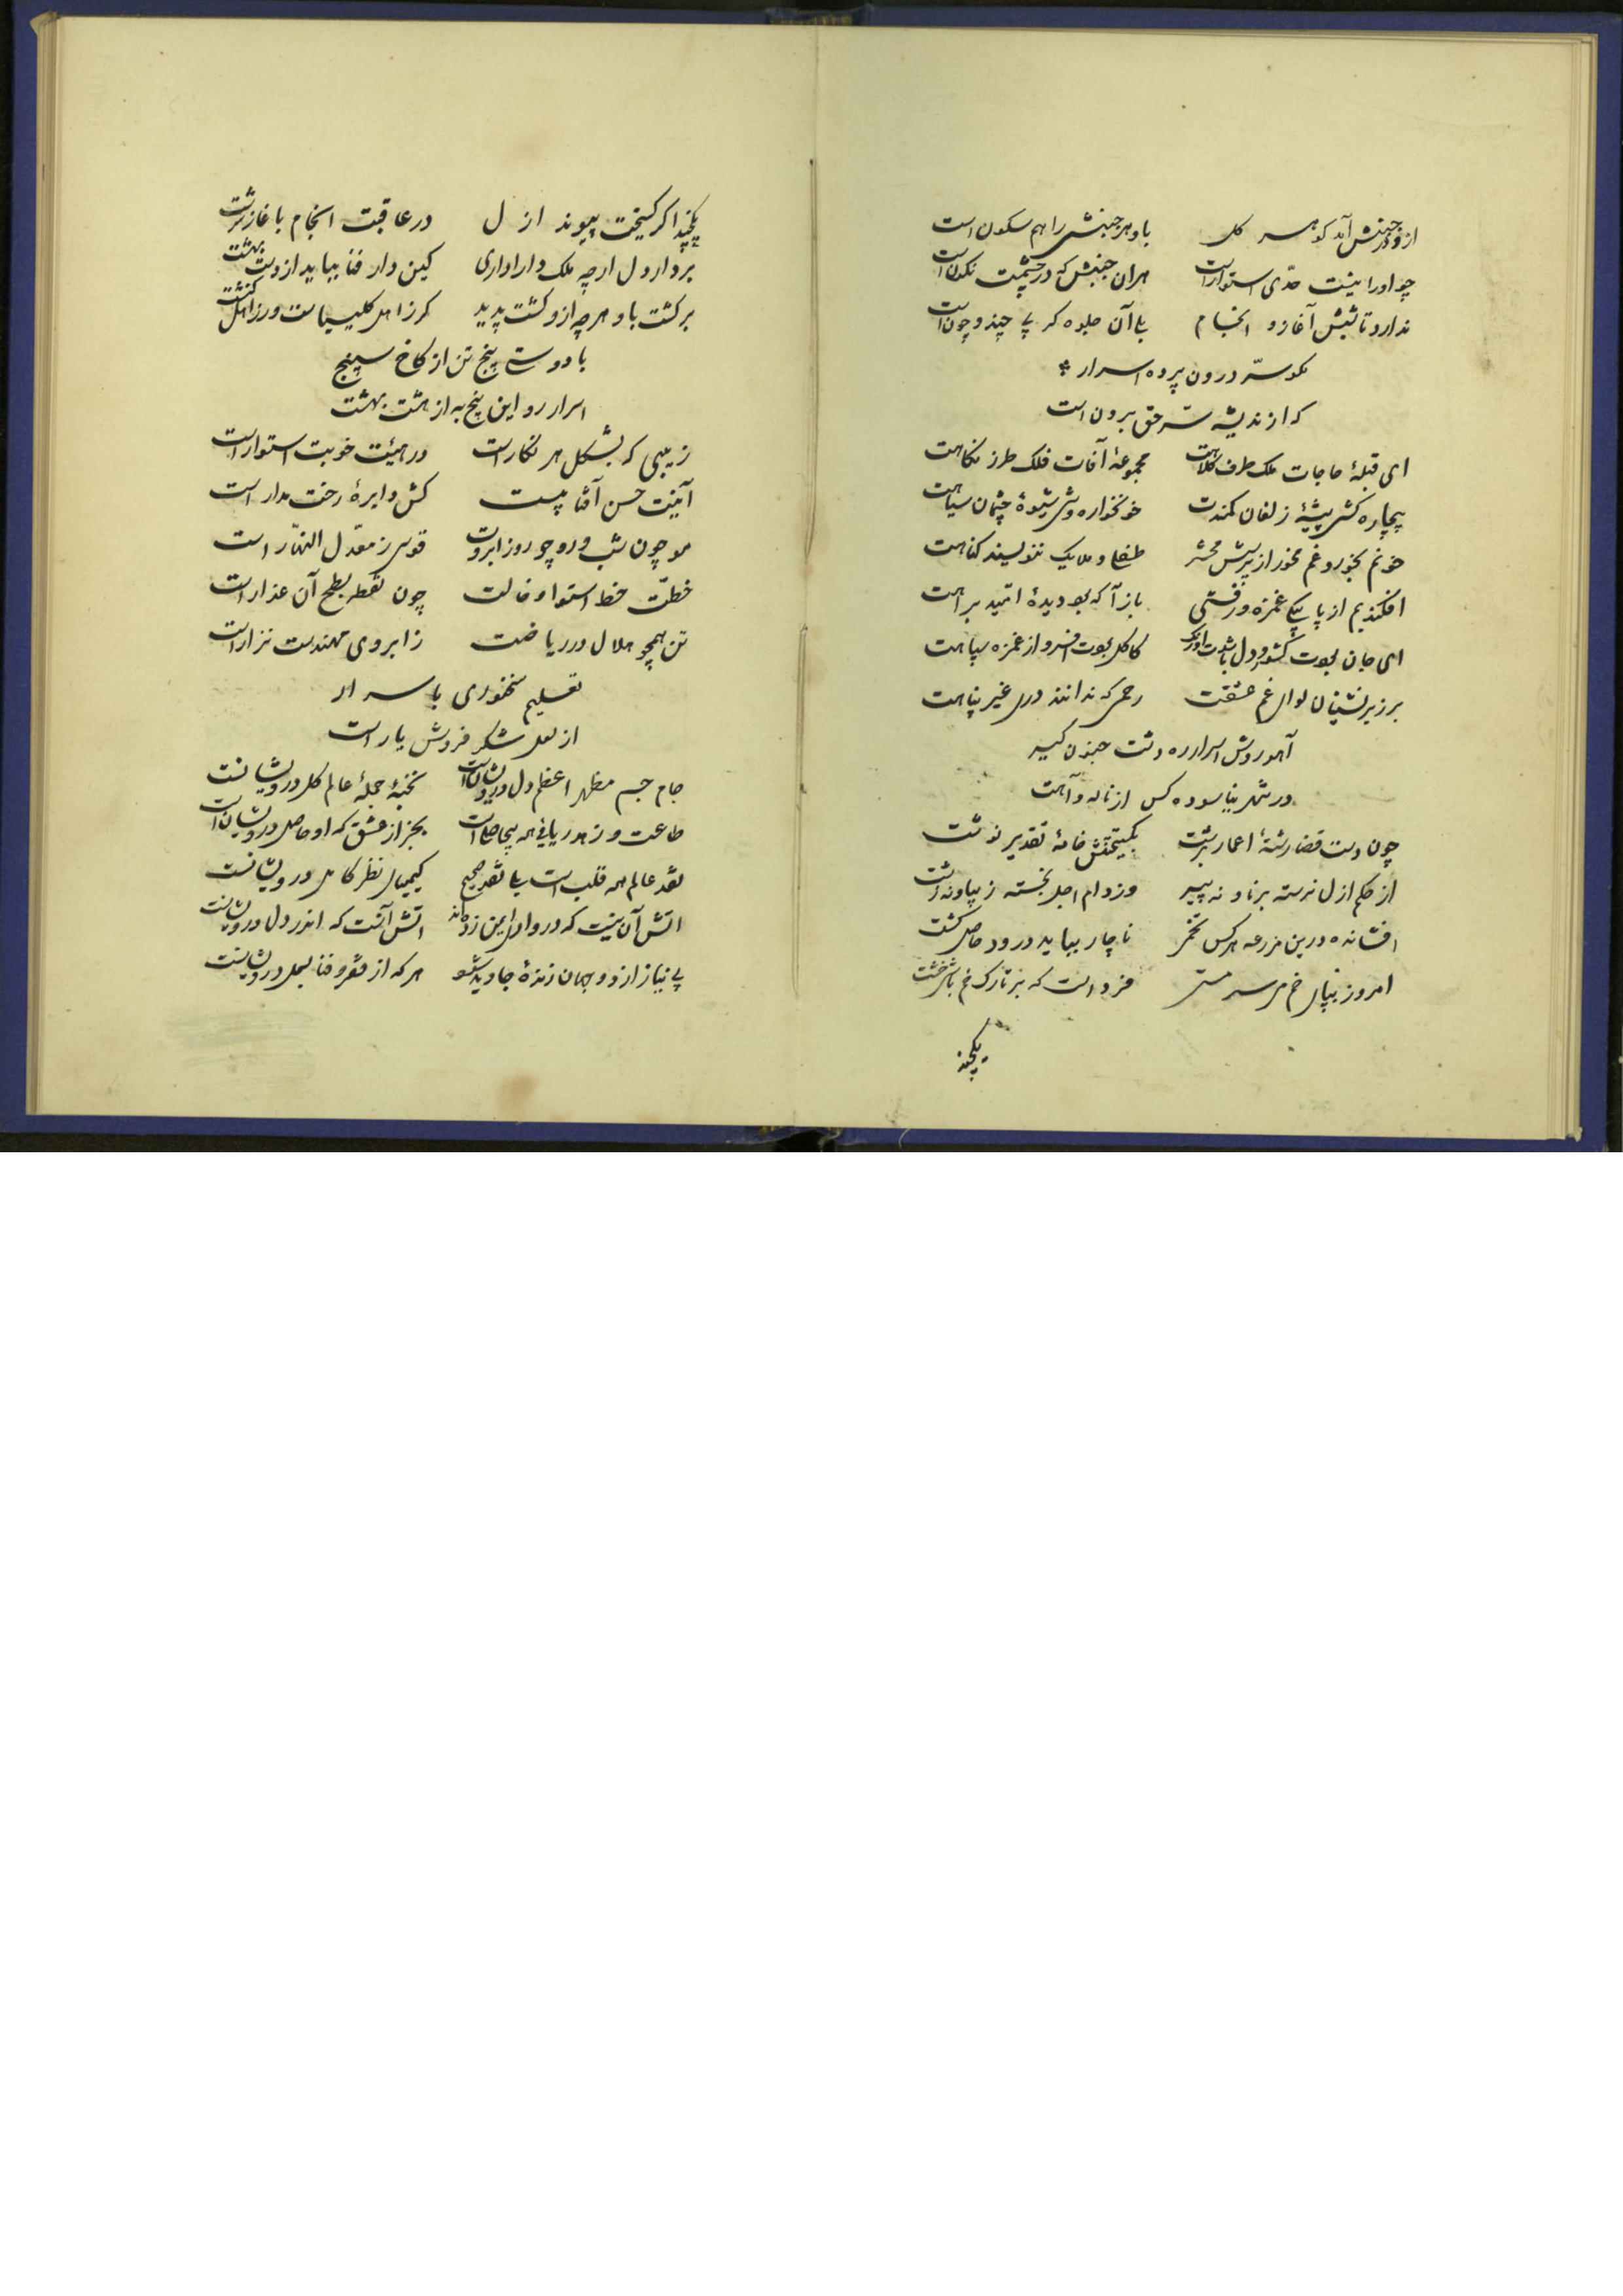 ازو در جنبش آمد کوهسر کل باو هر جنبشی را هم سکون است
چو او را نیست حدی استوار است هران جنبش که در چشمت نکون است
ندارد تابشش آغاز و انجام با آن جلوه کر بی چند و چون است
مکو سرّ درون پرده اسرار
که از ندیشه سرّ حق برون است
ای قبلهٔ حاجات ملک طرف کلاهت مجموعهٔ آفات فلک طرز نکاهت
بیچاره کشی پیشهٔ زلفان کمندت خونخواره وشی شیوهٔ چشمان سیاهت
خونم بخور و غم مخور از پرسش محشر طفلی و ملایک ننویسند کناهت
افکندیم از پا بیکی غمزه و رفتی باز آ که بود دیدهٔ امّید براهت
ای جان بودت کشور و دل باشدت اورنک کاکل بودت افسر و از غمزه سپاهت
برزیر نشینان لوای غم عشقت رحمی که ندانند دری غیر پناهت
آهو روش اسرار ره دشت جنون کیر
در شهر نیاسوده کس از ناله و آهت
چون دست قضا رشتهٔ اعمار برشت بکیتی نقش خامهٔ تقدیر نوشت
از حکم ازل نرسته برنا و نه پیر وز دام اجل نجسته زیبا و نه زشت
افشانده درین مزرعه هر کس تخمی ناچار بباید درود حاصل کشت
امروز بپای خم می سر مستی فرداست که بر تارک خم باشی خشت
یکچند
یکچند اکر کسیخت پیوند ازل در عاقبت انجام باغاز سرشت
بردار دل ارچه ملک دارا داری کین دار فنا بباید از دست بهشت
برکشت باو هر چه ازو کشت پدید کر ز اهل کلیساست ور ز اهل کنشت
با دوستی پنج تن از کاخ سپنج
اسرار رو این پنج به از هشت بهشت
زیبی که بشکل هر نکار است در هیئت خوبت استوار است
آیینت حسن آفتابیست کش دایرهٔ رخت مدار است
مو چون شب و رو چو روز ابروت قوسی ز معدّل النهار است
خطّت خط استوا و خالت چون نقطه بسطح آن عذار است
تن همچو هلال در ریاضت ز ابروی مهندست نزار است
تعلیم سخنوری باسرار
از لعل شکر فروش یار است
جام جم مظهر اعظم دل درویشان است نخبهٔ جملهٔ عالم کل درویشانست
طاعت و زهد ریایی همه بیحاصل است بجز از عشق که او حاصل درویشان است
نقد عالم همه قلب است بیا نقد صحیح کیمیای نظر کامل درویشانست
اتش آن نیست که در وادی ایمن زده‌اند اتش آنست که اندر دل درویشانست
بی نیاز از دو جهان زندهٔ جاوید شو هر که از فقر و فنا بسمل درویشانست